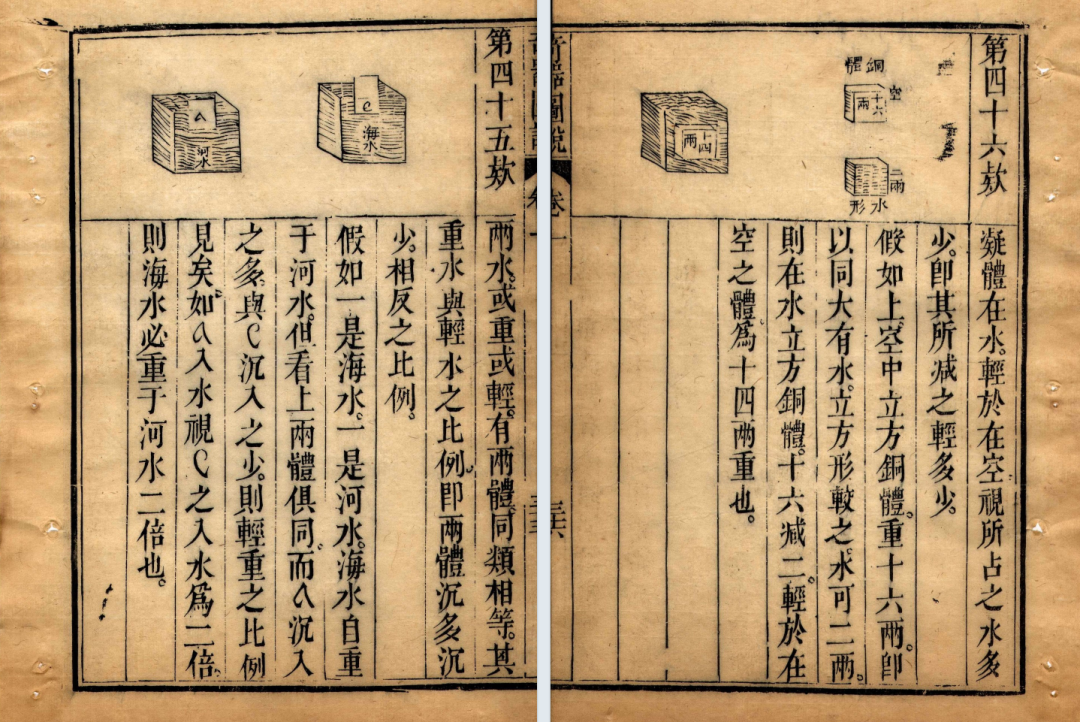 第四十六欵
銅體
空
十六兩
二兩
水形
十四兩
凝體在水。輕於在空視所占之水多
少。卽其所減之輕多少。
假如上空中立方銅體。重十六兩。卽
以同大有水。立方形較之。水可二兩。
則在水立方銅體。十六减二。輕於在
空之體爲十四兩重也。
奇器圖說
卷一
第四十五欵
C
海水
A
河水
兩水或重或輕。有兩體。同類相等。其
重水與輕水之比例。卽兩體沉多沉
少。相反之比例。
假如一是海水。一是河水。海水自重
于河水。但看上兩體俱同。而A沉入
之多。與C沉入之少。則輕重之比例
見矣。如A入水視C之入水爲二倍。
則海水必重于河水二倍也。